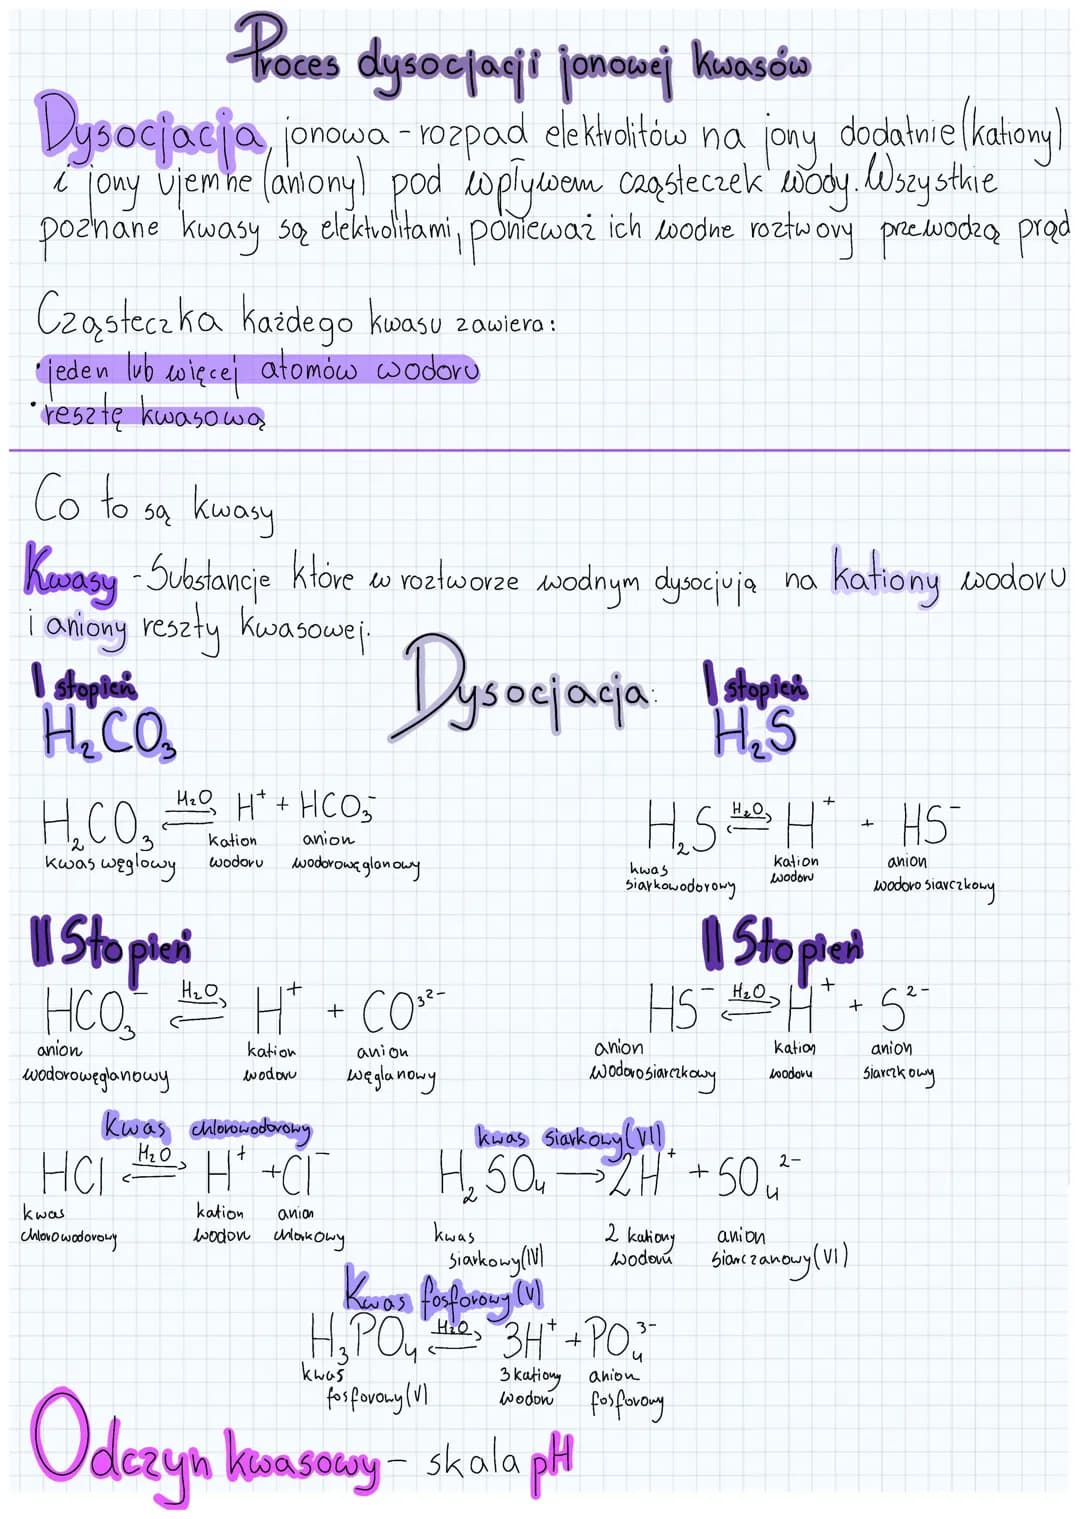 Proces dysocjacji jonowej kwasów
Dysocjacja jonowa - rozpad elektrolitów na jony dodatnie (kationy)
i jony ujemne (aniony) pod wpływem cząsteczek wody. Wszystkie
poznane kwasy są elektrolitami, ponieważ ich wodne roztwory przewodzą prąd
Cząsteczka każdego kwasu zawiera:
• jeden lub więcej atomów wodoru
• resztę kwasową
Co to są kwasy
Kwasy - Substancje które w roztworze wodnym dysocjują na kationy wodoru
i aniony reszty kwasowej.
Dysocjacja:
I stopień
H₂CO₃
H₂CO₃ ⇌ H₂O H⁺ + HCO₃⁻
kwas węglowy kation wodoru anion wodorowęglanowy
I stopień
H₂S
H₂S ⇌ H₂O H⁺ + HS⁻
kwas siarkowodorowy kation wodoru anion wodorosiarczkowy
II Stopień
HCO₃⁻ ⇌ H₂O H⁺ + CO³²⁻
anion wodorowęglanowy kation wodoru anion węglanowy
II Stopień
HS⁻ ⇌ H₂O H⁺ + S²⁻
anion wodorosiarczkowy kation wodoru anion siarczkowy
Kwas chlorowodorowy
HCl ⇌ H₂O H⁺ + Cl⁻
kwas chlorowodorowy kation wodoru anion chlorkowy
kwas siarkowy (VI)
H₂SO₄ → 2H⁺ + SO₄²⁻
kwas siarkowy (IV) 2 kationy wodoru anion siarczanowy (VI)
Kwas fosforowy (V)
H₃PO₄ ⇌ H₂O 3H⁺ + PO₄³⁻
kwas fosforowy (V) 3 kationy wodoru anion fosforowy
Odczyn kwasowy - skala pH